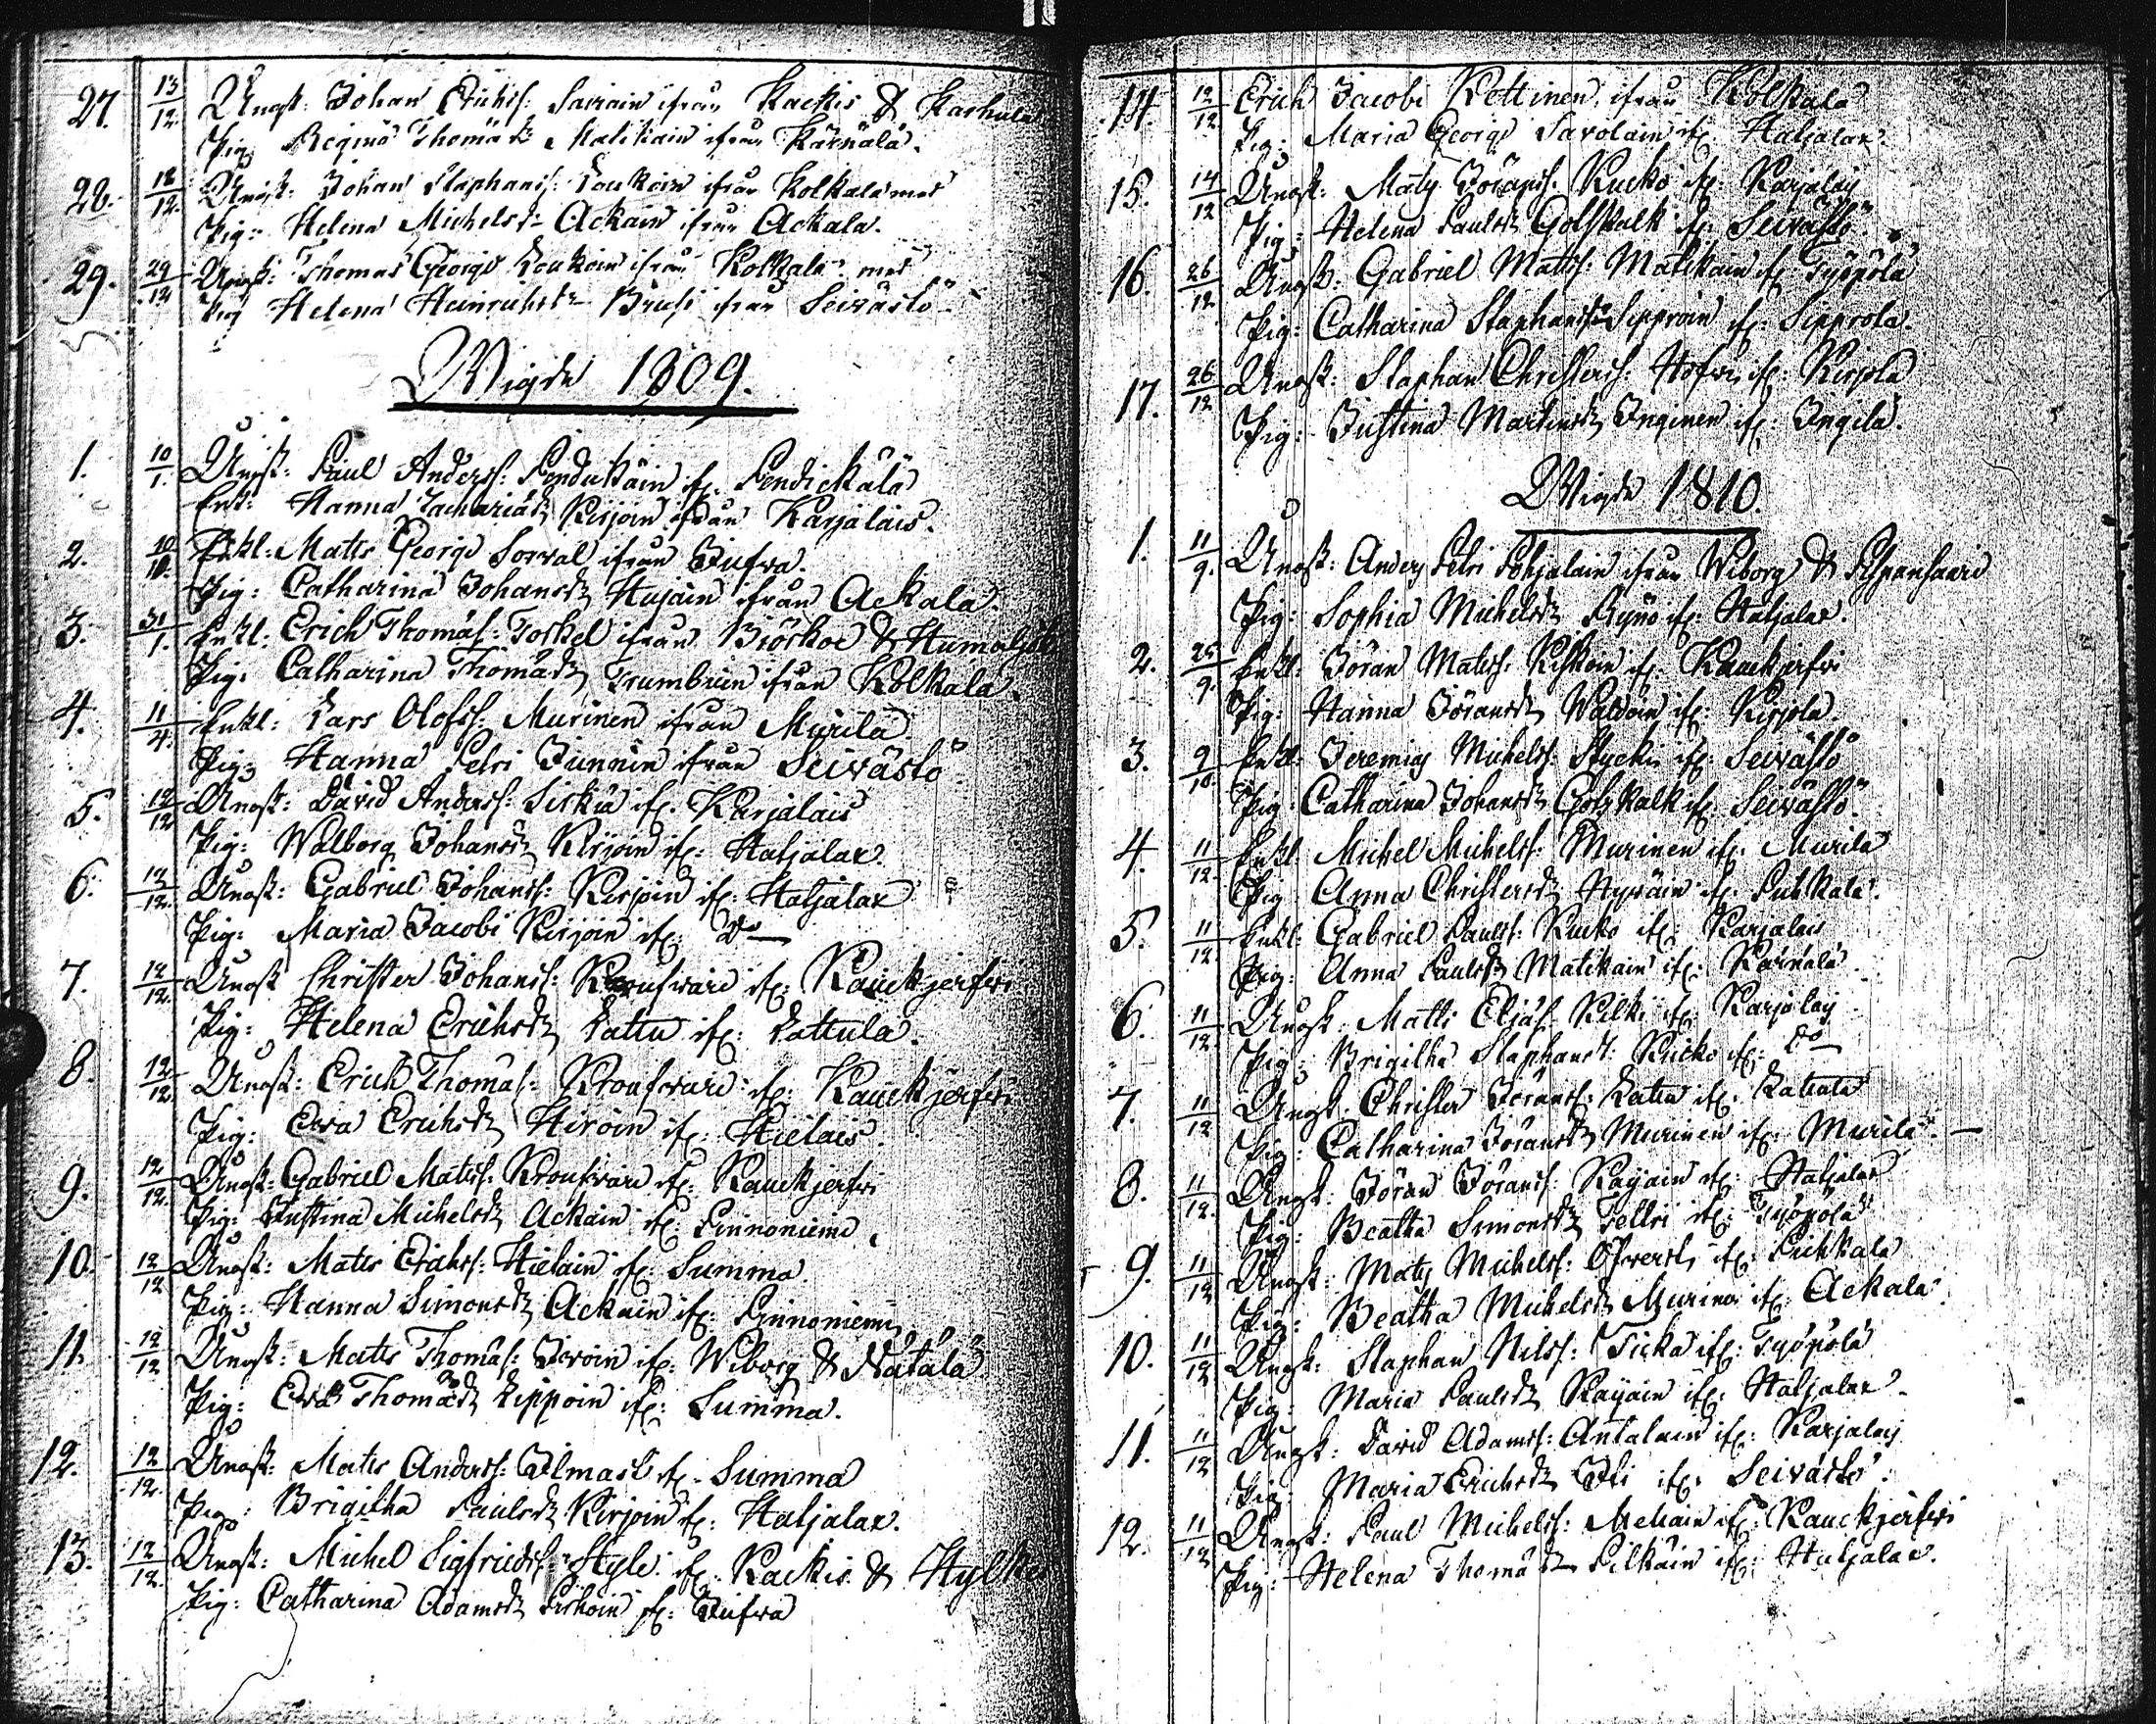 27. 13/12 Ungk: Johan Erichss: Sairain ifrån Kackis & Karhula
Pig: Regina Thomædr Matikain ifrån Kärnälä.
28. 18/12 Ungk: Johan Staphanss: Loukoin ifrån Kolkala med
Pig: Helena Michelsdr Ackain ifrån Ackala.
29. 29/12 Ungk: Thomas Georgs Loukoin ifrån Kolkala med
Pig Helena Heinrichsdr ifrån Seivästö
Wigde 1809.
1. 10/1. Ungk: Paul Anderss: Pendickäin if: Pendickälä
Enk: Hanna Zachariædr Kirjoin ifrån Karjalais.
2. 10/10. Enkl: Matts Georgs Sorval ifrån Jufwa.
Pig: Catharina Johansdr Hujain ifrån Ackala.
3. 31/1. Enkl: Erich Thomæs: Torkel ifrån Björkoe &
Pig: Catharina Thomædr ifrån Kolkala.
4. 11/4. Enkl: Lars Olofss: Murinen ifrån Murila.
Pig: Hanna Petri Junnin ifrån Seivästö
5. 12/12 Ungk: David Anderss: Siskiä if: Karjalais
Pig: Walborg Johansdr Kirjoin if: Hatjalax.
6. 12/12. Ungk: Gabriel Johanss: Kirjoin if: Hatjalax
Pig: Maria Jacobi Kirjoin if: Do
7. 12/12. Ungk Christer Johanss: if: Kauckjerfwi
Pig: Helena Erichsdr Lattu if: Lattula.
8. 12/12. Ungk: Erich Thomæs: Kroufwari if: Kauckjerfwi
Pig: Ewa Erichsdr Hiroin if: Hielais.
9. 12/12. Ungk: Gabriel Matss: Kroufwari if: Kauckjerfwi
Pig: Justina Michelsdr Ackain if: Pinnoniemi.
10. 12/12 Ungk: Matts Erichss: Hielain if: Summa.
Pig: Hanna Simonsdr Ackain if: Pinnoniemi
11. 12/12 Ungk: Matts Thomæs: if: Wiborg & Nätälä
Pig: Ewa Thomædr Lippoin if: Summa.
12. 12/12. Ungk: Matts Anderss: Ilmast if: Summa
Pig: Brigitha Paulsdr Kirjoin if: Hatjalax.
13. 12/12. Ungk: Michel Sigfridss: Hyle if: Kackis &
Pig: Catharina Adamsdr if: Jufwa
14. 12/12 Erich Jacobi Kettinen ifrån Kolkala
Pig: Maria Georgs Savolain if: Hatjalax.
15. 14/12 Ungk: Mats Jöranss: Kucko if: Karjalais
Pig: Helena Paulsdr Golskalk if: Seivästö.
16. 26/12 Ungk: Gabriel Matss: Matikain if: Työpölä
Pig: Catharina Staphansdr Sipproin if: Sipprola.
17. 26/12 Ungk: Staphan Christerss: Hofwi if: Kirjola
Pig: Justina Martinsdr Inginen if: Ingila.
Wigde 1810.
1. 11/9. Ungk: Anders Petri Pohjalain ifrån Wiborg &
Pig: Sophia Michelsdr if: Hatjalax.
2. 25/9. Enkl: Jöran Matss: if: Kauckjerfwi
Pig: Hanna Jöransdr if: Kirjola.
3. 9/10 Enkl: Jeremias Michelss: Styckin if: Seivästö
Pig: Catharina Johansdr Golskalk if: Seivästö.
4. 11/12. Enkl: Michel Michelss: Murinen if: Murila
Pig: Anna Christersdr if: Puhkala.
5. 11/12. Enkl: Gabriel Paulss: Kucko if: Karjalais
Pig: Anna Paulsdr Matikain if: Kärnälä.
6. 11/12. Ungk: Matts Eliæs: Kilki if: Karjalais
Pig: Brigitha Staphansd: Kucko if: Do
7. 11/12 Ungk: Christer Jöranss: Lattu if: Lattula
Pig: Catharina Jöransdr Murinen if: Murila.
8. 11/12. Ungk: Jöran Jöranss: Rajain if: Hatjalax
Pig: Beatha Simonsdr Teltri if: Työpölä
9. 11/12 Ungk: Mats Michelss: if: Puhkala
Pig: Beatha Michelsdr Murinen if: Ackala.
10. 11/12 Ungk: Staphan Nilss: Ticka if: Työpölä
Pig: Maria Paulsdr Rajain if: Hatjalax
11. 11/12 Ungk: David Adamss: Antalain if: Karjalais
Pig: Maria Erichsdr if: Seivästö.
12. 11/12 Ungk: Paul Michelss: if: Kauckjerfwi
Pig: Helena Thomædr Pilkäin if: Hatjalax.